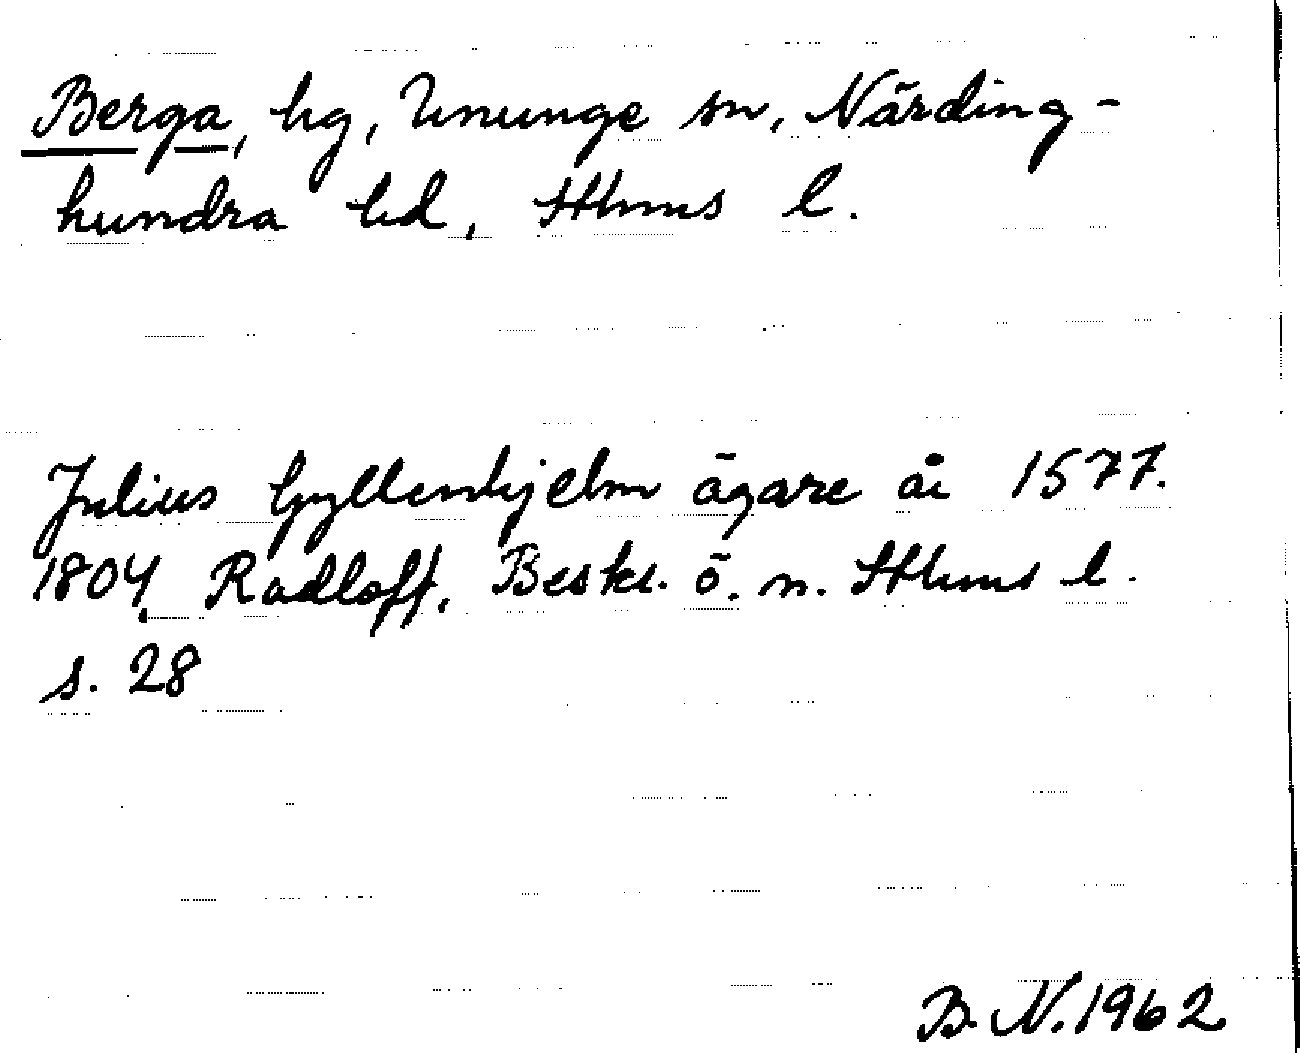 Berga, hg, Ununge sn, Närding-
hundra hd, Sthms l.
Julius Gyllenhjelm ägare år 1577.
1804. Radloff, Beskr. ö. n. Sthms l.
s. 28
B. N. 1962